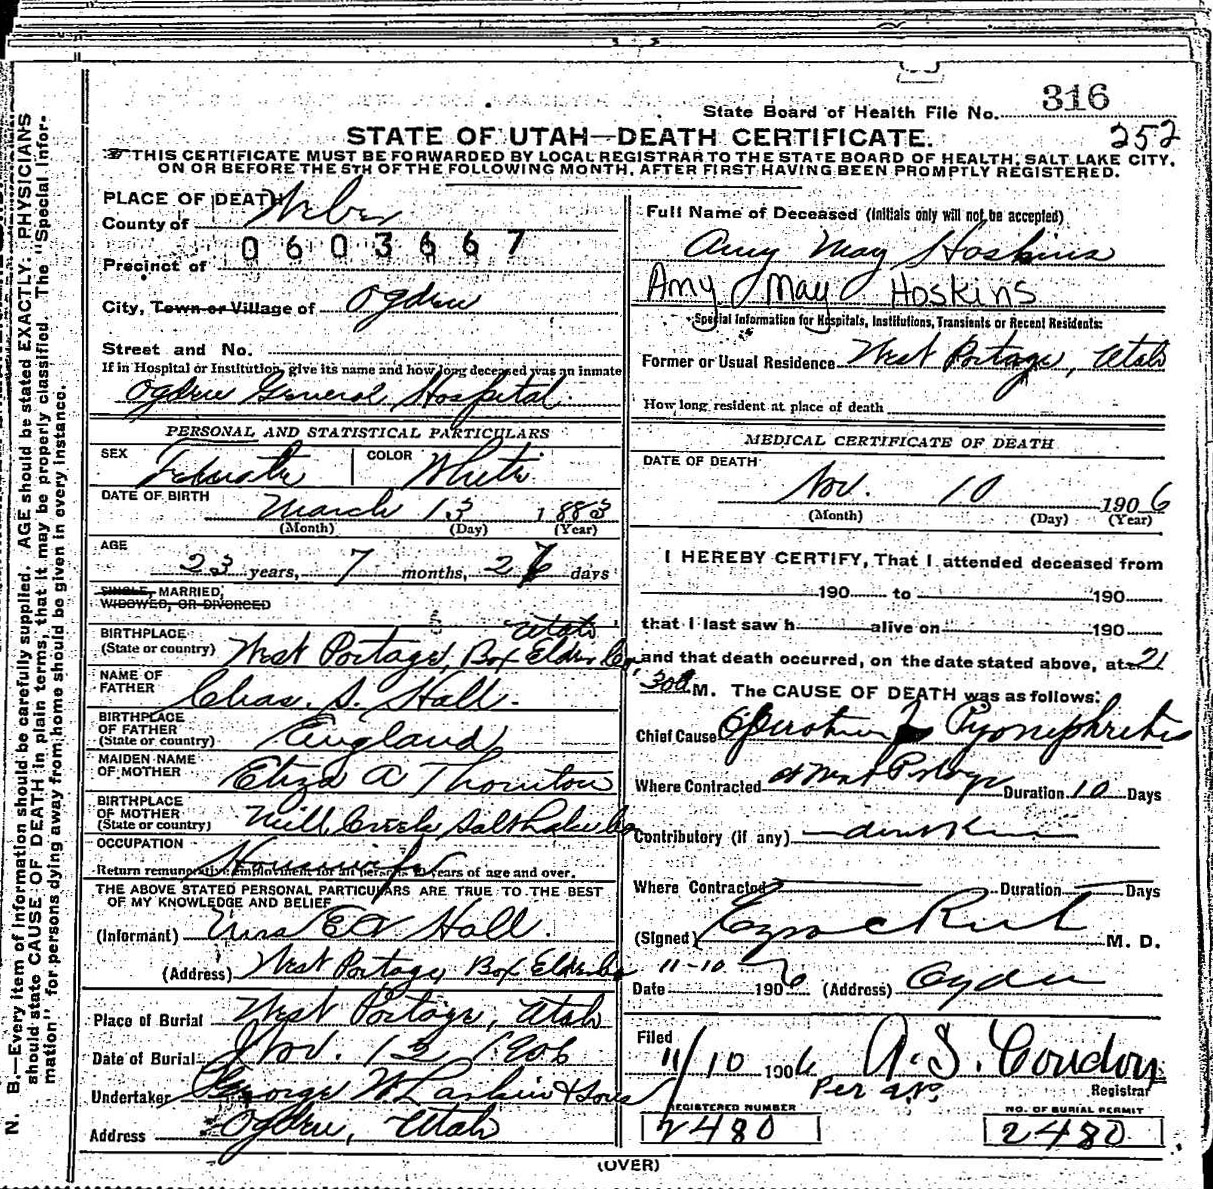 State Board of Health File No. 316
STATE OF UTAH—DEATH CERTIFICATE.
252
THIS CERTIFICATE MUST BE FORWARDED BY LOCAL REGISTRAR TO THE STATE BOARD OF HEALTH, SALT LAKE CITY,
ON OR BEFORE THE 5TH OF THE FOLLOWING MONTH, AFTER FIRST HAVING BEEN PROMPTLY REGISTERED.
N. B.—Every item of information should be carefully supplied. AGE should be stated EXACTLY. PHYSICIANS
should state CAUSE OF DEATH in plain terms, that it may be properly classified. The "Special Infor-
mation" for persons dying away from home should be given in every instance.
PLACE OF DEATH
County of Weber
0603667
Precinct of
City, Town or Village of Ogden
Street and No.
If in Hospital or Institution, give its name and how long deceased was an inmate
Ogden General Hospital
PERSONAL AND STATISTICAL PARTICULARS
SEX Female COLOR White
DATE OF BIRTH March 13 1883
(Month) (Day) (Year)
AGE
23 years, 7 months, 27 days
SINGLE, MARRIED,
WIDOWED, OR DIVORCED
BIRTHPLACE Utah
(State or country) West Portage, Box Elder Co.
NAME OF
FATHER Chas. S. Hall.
BIRTHPLACE
OF FATHER England
(State or country)
MAIDEN NAME
OF MOTHER Eliza A Thornton
BIRTHPLACE
OF MOTHER Mill Creek Salt Lake Co
(State or country)
OCCUPATION Housewife
Return remunerative employment for all persons 10 years of age and over.
THE ABOVE STATED PERSONAL PARTICULARS ARE TRUE TO THE BEST
OF MY KNOWLEDGE AND BELIEF
(Informant) E A Hall.
(Address) West Portage Box Elder Co
Place of Burial West Portage, Utah
Date of Burial Nov. 13 1906
Undertaker George W Larkin & Sons
Address Ogden, Utah
Full Name of Deceased (Initials only will not be accepted)
Amy May Hoskins
Amy May Hoskins
Special Information for Hospitals, Institutions, Transients or Recent Residents:
Former or Usual Residence West Portage, Utah
How long resident at place of death
MEDICAL CERTIFICATE OF DEATH
DATE OF DEATH
Nov. 10 1906
(Month) (Day) (Year)
I HEREBY CERTIFY, That I attended deceased from
190 to 190
that I last saw h alive on 190
and that death occurred, on the date stated above, at
M. The CAUSE OF DEATH was as follows:
Chief Cause Operation Pyonephritis
Where Contracted at West Portage Duration 10 Days
Contributory (if any)
Where Contracted Duration Days
(Signed) M. D.
Date 11-10 1906 (Address) Ogden
Filed
11/10 1906 A. S. Condon
Per
Registrar
REGISTERED NUMBER
2480
NO. OF BURIAL PERMIT
2480
(OVER)